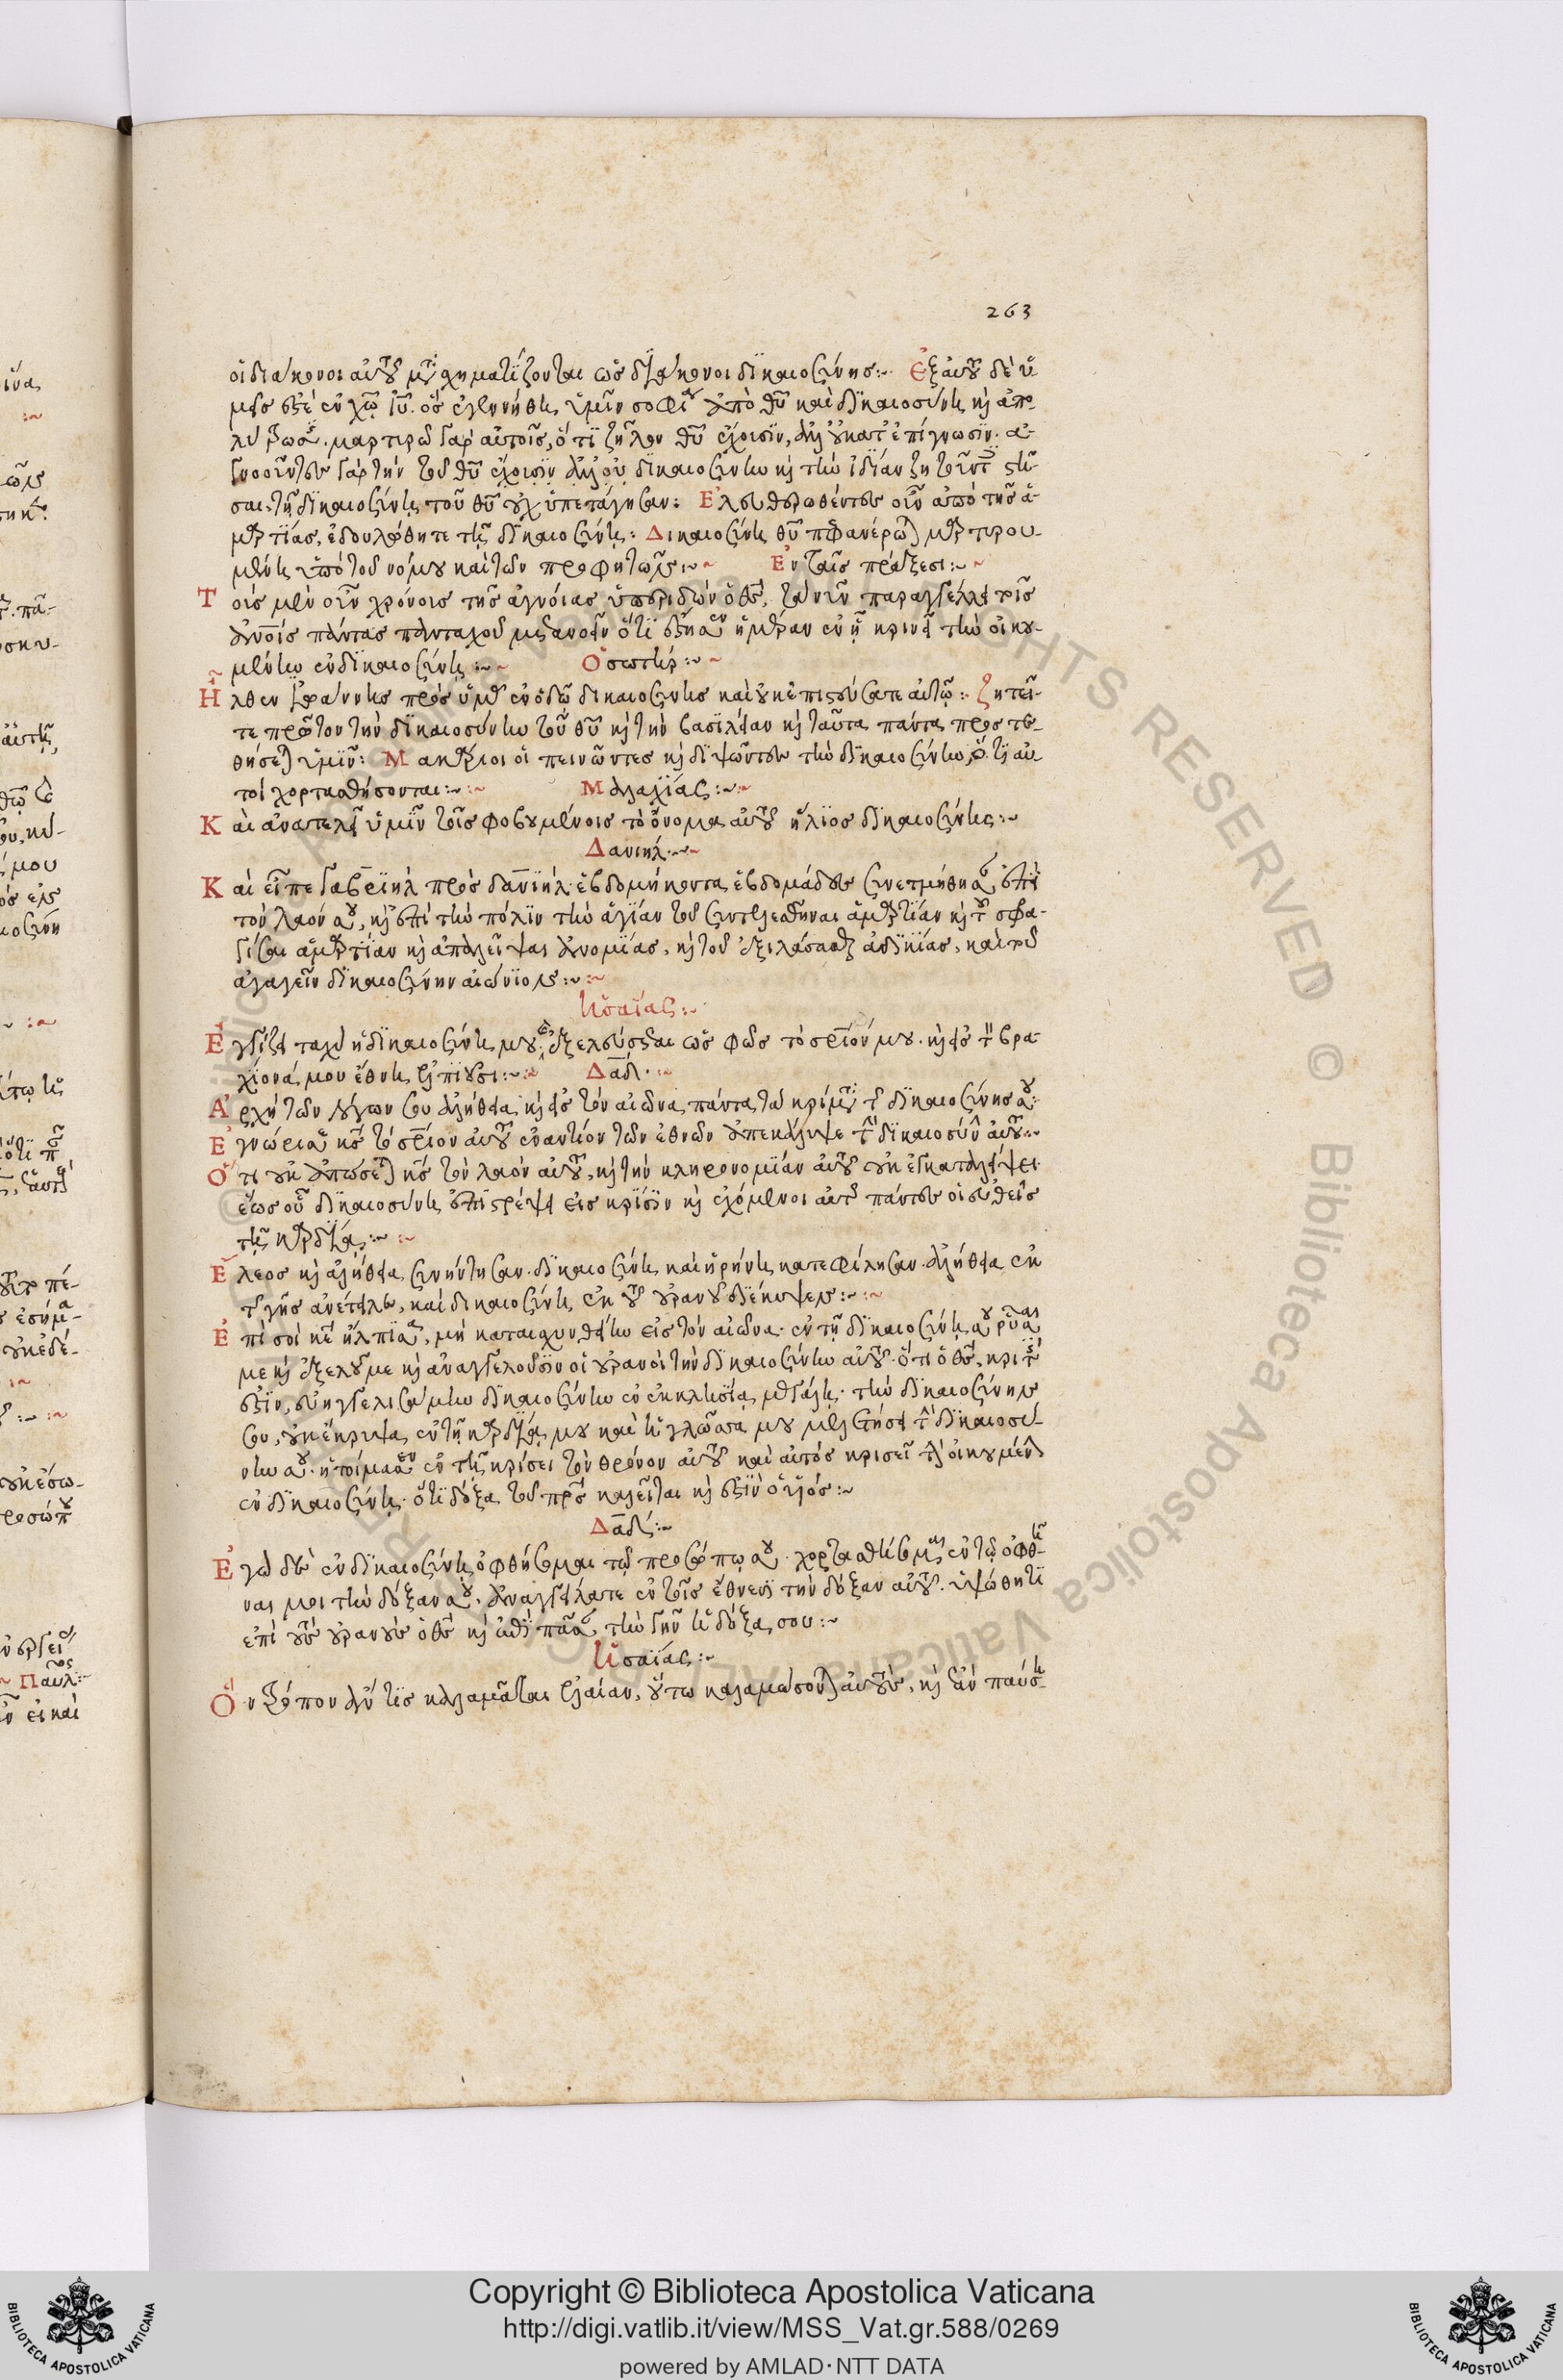 263
οἱ διάκονοι αὐτοῦ μετασχηματίζονται ὡς διάκονοι δικαιοσύνης :· Ἐξ αὐτοῦ δὲ ὑ-
μεῖς ἐστὲ ἐν χῷ ἰῦ. ὃς ἐγεννήθη ὑμῖν σοφία ἀπὸ θῦ καὶ δικαιοσύνη καὶ ἀπο-
λύτρωσις. μαρτυρῶ γὰρ αὐτοῖς, ὅτι ζῆλον θῦ ἔχουσιν, ἀλλ' οὐ κατ' ἐπίγνωσιν. ἀ-
γνοοῦντες γὰρ τὴν τοῦ θῦ δικαιοσύνην καὶ τὴν ἰδίαν ζητοῦντες στῆ-
σαι, τῇ δικαιοσύνῃ τοῦ θῦ οὐχ ὑπετάγησαν : Ἐλευθερωθέντες οὖν ἀπὸ τῆς ἁ-
μαρτίας, ἐδουλώθητε τῇ δικαιοσύνῃ : Δικαιοσύνη θῦ πεφανέρωται μαρτυρου-
μένη ὑπὸ τοῦ νόμου καὶ τῶν προφητῶν :~ Ἐν ταῖς πράξεσι :~
Τοῖς μὲν οὖν χρόνοις τῆς ἀγνοίας ὑπεριδὼν ὁ θς, τὰ νῦν παραγγέλλει τοῖς
ἀνοις πάντας πανταχοῦ μετανοεῖν ὅτι ἔστησεν ἡμέραν ἐν ᾗ κρινεῖ τὴν οἰκου-
μένην ἐν δικαιοσύνῃ :~ Ὁ σωτήρ :~
Ἦλθεν Ἰωάννης πρὸς ὑμᾶς ἐν ὁδῷ δικαιοσύνης καὶ οὐκ ἐπιστεύσατε αὐτῷ : ζητεῖ-
τε πρῶτον τὴν δικαιοσύνην τοῦ θῦ καὶ τὴν βασιλείαν καὶ ταῦτα πάντα προστε-
θήσεται ὑμῖν : Μακάριοι οἱ πεινῶντες καὶ διψῶντες τὴν δικαιοσύνην, ὅτι αὐ-
τοὶ χορτασθήσονται :~ Μαλαχίας :~
Καὶ ἀνατελεῖ ὑμῖν τοῖς φοβουμένοις τὸ ὄνομα αὐτοῦ ἥλιος δικαιοσύνης :~
Δανιήλ :~
Καὶ εἶπε Γαβριὴλ πρὸς δανιήλ ἑβδομήκοντα ἑβδομάδες συνετμήθησαν ἐπὶ
τὸν λαόν σου, καὶ ἐπὶ τὴν πόλιν τὴν ἁγίαν τοῦ συντελεσθῆναι ἁμαρτίαν καὶ τοῦ σφρα-
γίσαι ἁμαρτίαν καὶ ἀπαλεῖψαι ἀνομίας, καὶ τοῦ ἐξιλάσασθαι ἀδικίας, καὶ τοῦ
ἀγαγεῖν δικαιοσύνην αἰώνιον :~
Ἡσαΐας :·
Ἐγγίζει ταχὺ ἡ δικαιοσύνη μου, καὶ ἐξελεύσεται ὡς φῶς τὸ σριόν μου. καὶ εἰς τὸν βρα-
χίονά μου ἔθνη ἐλπιοῦσι :~ Δαδ :~
Ἀρχὴ τῶν λόγων σου ἀλήθεια, καὶ εἰς τὸν αἰῶνα πάντα τὰ κρίματα τῆς δικαιοσύνης σου :
Ἐγνώρισε κς τὸ σριον αὐτοῦ ἐναντίον τῶν ἐθνῶν ἀπεκάλυψε τὴν δικαιοσύνην αὐτοῦ :~
Ὅτι οὐκ ἀπώσεται κς τὸν λαὸν αὐτοῦ, καὶ τὴν κληρονομίαν αὐτοῦ οὐκ ἐγκαταλείψει
ἕως οὗ δικαιοσύνη ἐπιστρέψει εἰς κρίσιν καὶ ἐχόμενοι αὐτῆς πάντες οἱ εὐθεῖς
τῇ καρδίᾳ :~
Ἔλεος καὶ ἀλήθεια συνήντησαν. δικαιοσύνη καὶ εἰρήνη κατεφίλησαν. ἀλήθεια ἐκ
τῆς γῆς ἀνέτειλεν, καὶ δικαιοσύνη ἐκ τοῦ οὐρανοῦ διέκυψεν :~
Ἐπὶ σοὶ κε ἤλπισα, μὴ καταισχυνθείην εἰς τὸν αἰῶνα. ἐν τῇ δικαιοσύνῃ σου ῥῦσαι
με καὶ ἐξελοῦ με καὶ ἀναγγελοῦσιν οἱ οὐρανοὶ τὴν δικαιοσύνην αὐτοῦ. ὅτι ὁ θς κριτής
ἐστιν, εὐηγγελισάμην δικαιοσύνην ἐν ἐκκλησίᾳ μεγάλῃ. τὴν δικαιοσύνην
σου, οὐκ ἔκρυψα ἐν τῇ καρδίᾳ μου καὶ ἡ γλῶσσα μου μελετήσει τὴν δικαιοσύ-
νην σου. ἡτοίμασεν ἐν τῇ κρίσει τὸν θρόνον αὐτοῦ καὶ αὐτὸς κρινεῖ τὴν οἰκουμένην
ἐν δικαιοσύνῃ. ὅτι δόξα τοῦ πρς καλεῖται καὶ ἐστὶν ὁ υἱός :~
Δαδ :~
Ἐγὼ δὲ ἐν δικαιοσύνῃ ὀφθήσομαι τῷ προσώπῳ σου. χορτασθήσομαι ἐν τῷ ὀφθῆ-
ναι μοι τὴν δόξαν σου. ἀναγγείλατε ἐν τοῖς ἔθνεσι τὴν δόξαν αὐτοῦ. ὑψώθητι
ἐπὶ τοὺς οὐρανοὺς ὁ θς καὶ ἐπὶ πᾶσαν τὴν γῆν ἡ δόξα σου :~
Ἡσαΐας :~
Ὃν τρόπον ἐάν τις καλαμᾶται ἐλαίαν, οὕτω καλαμήσονται αὐτούς, καὶ ἐὰν παύση-
Copyright © Biblioteca Apostolica Vaticana
http://digi.vatlib.it/view/MSS_Vat.gr.588/0269
powered by AMLAD·NTT DATA